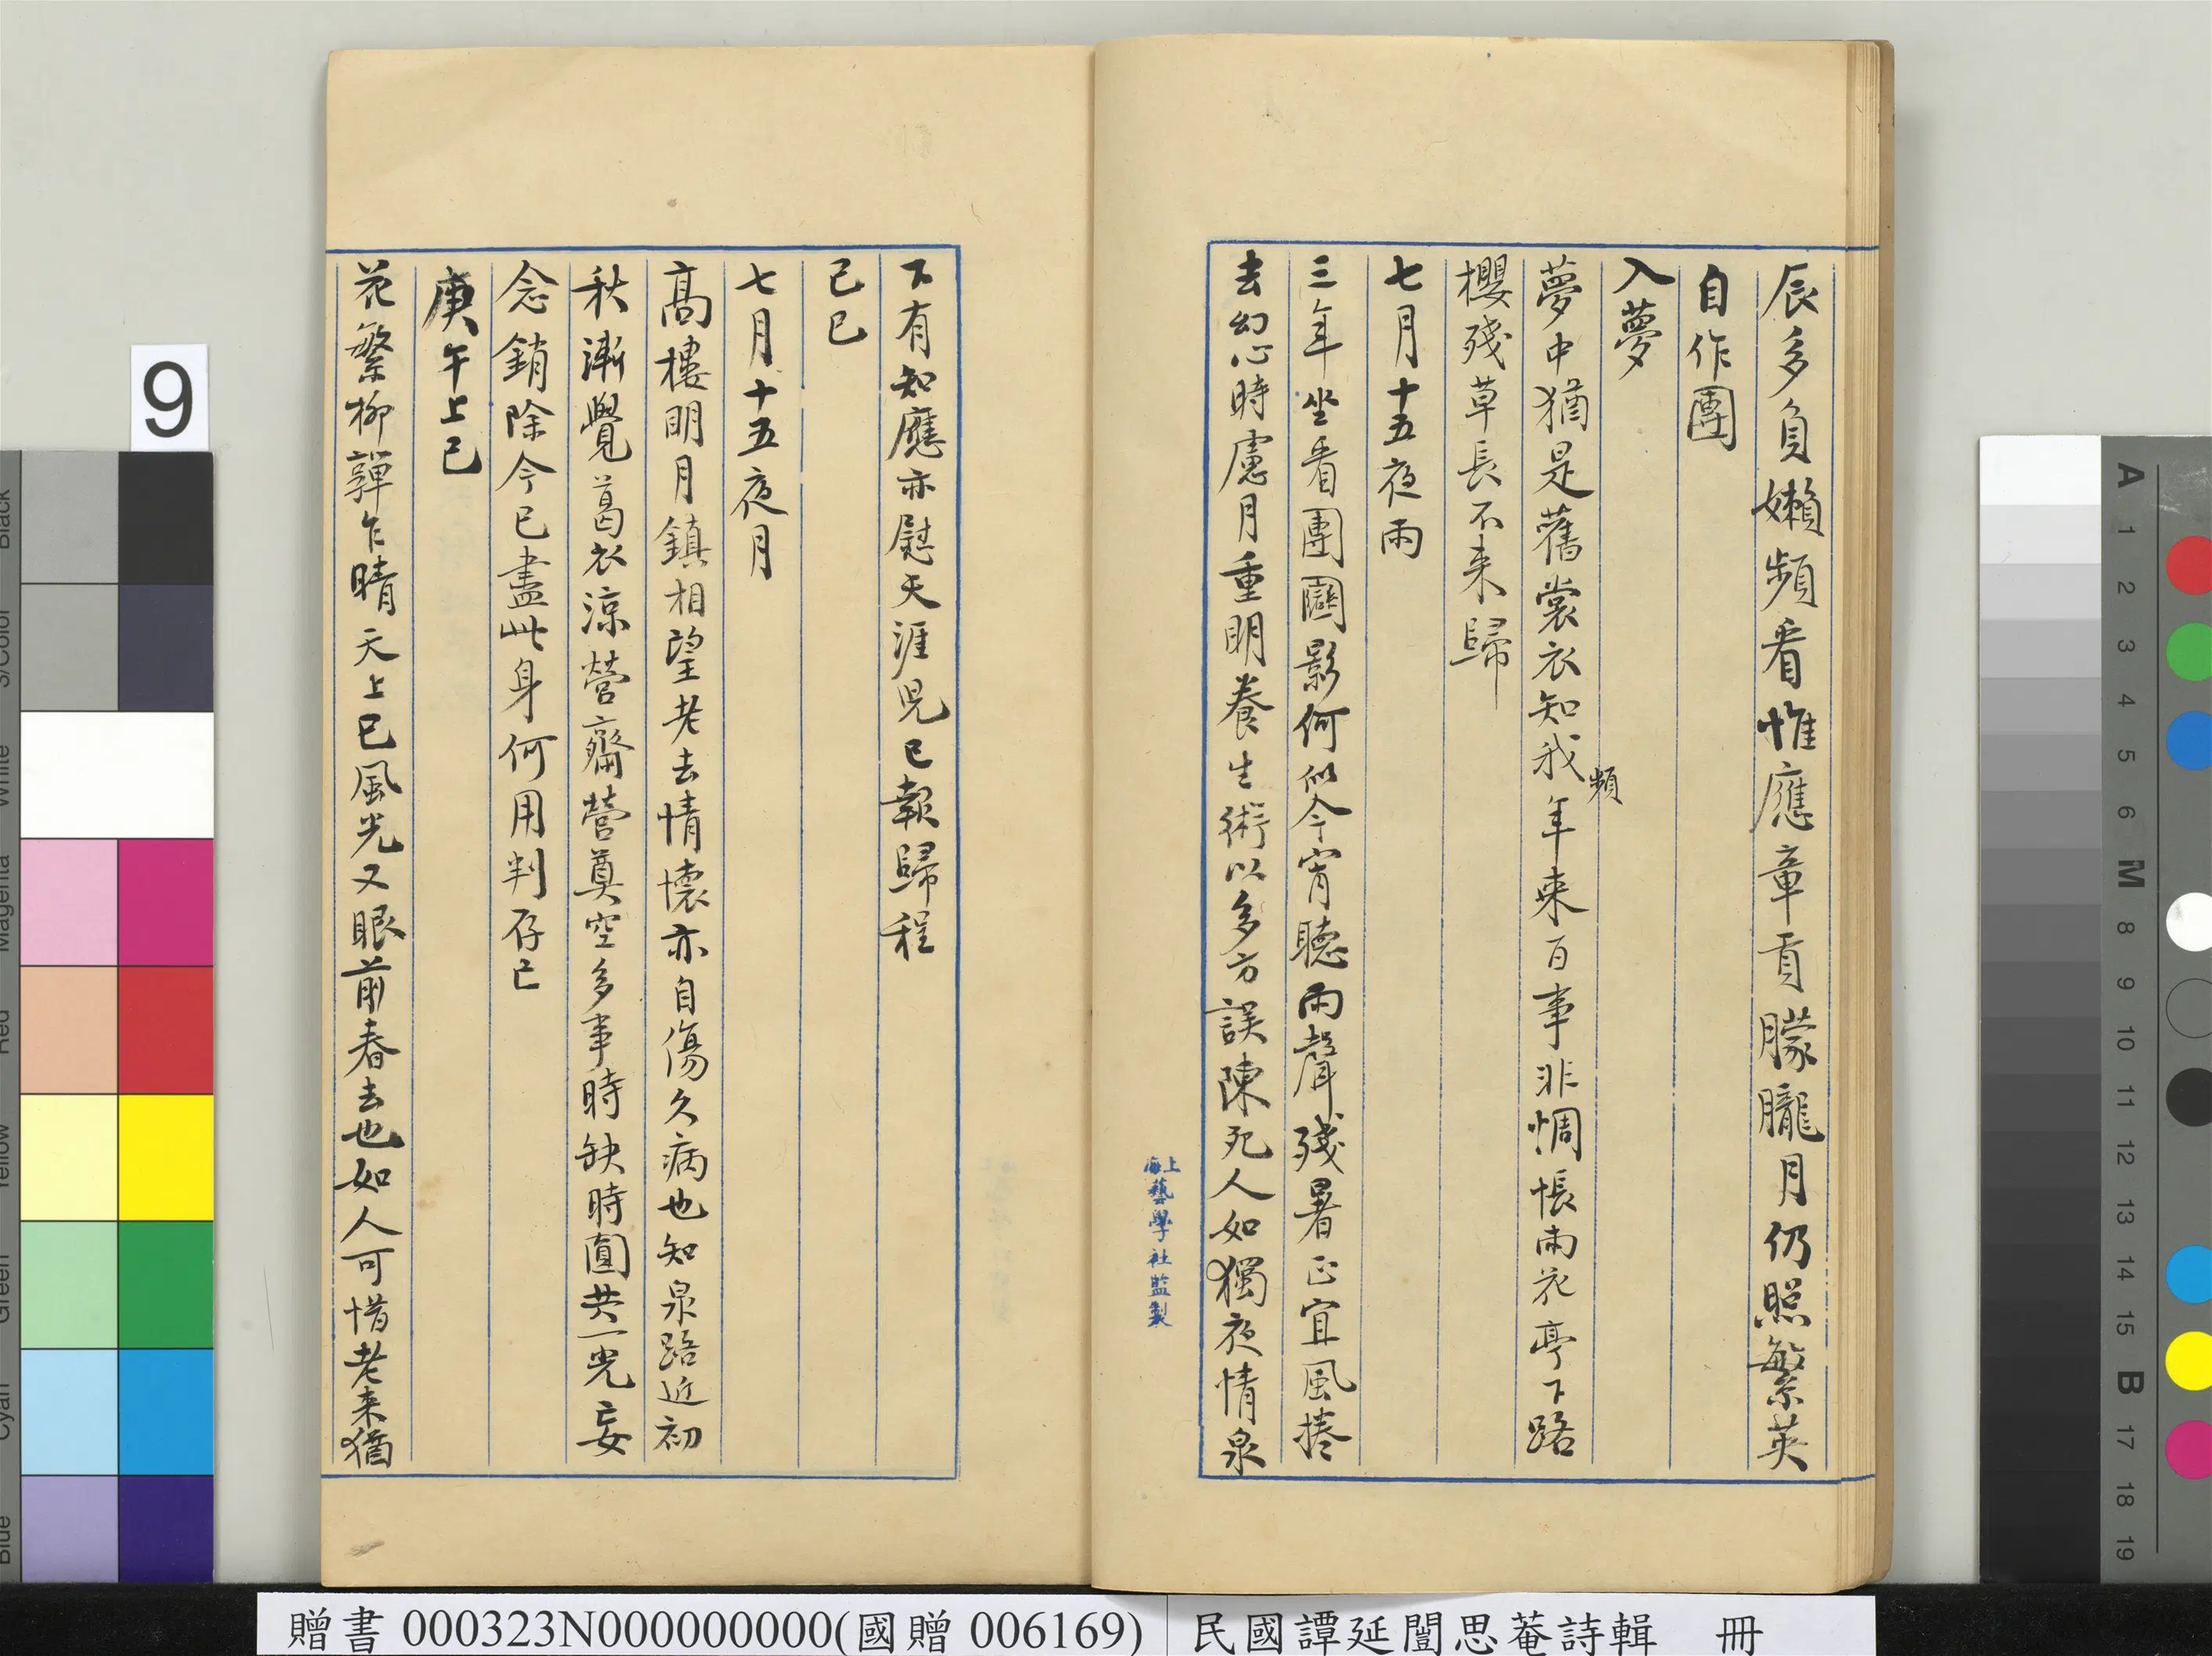 辰多負嬾頻看惟應章貢朦朧月仍照繁英
自作團
入夢
夢中猶是舊裳衣知我頻年來百事非惆悵雨花亭下路
櫻殘草長不来歸
七月十五夜雨
三年坐看團圞影何似今宵聽雨聲殘暑正宜風捲
去幻心時慮月重明養生術以多方誤陳死人如獨夜情泉
上海藝學社監製
下有知應亦慰天涯兒已報歸程
己巳
七月十五夜月
高樓明月鎮相望老去情懷亦自傷久病也知泉路近初
秋漸覺葛衣涼營齋營奠空多事時缺時圓共一光妄
念銷除今已盡此身何用判存亡
庚午上巳
花繁柳嚲乍晴天上巳風光又眼前春去也如人可惜老来猶
9
贈書 000323N000000000(國贈 006169)
民國譚延闓思菴詩輯 冊
Black
3/Color
White
Magenta
Red
Yellow
Green
Cyan
Blue
A
1
2
3
4
5
6
M
8
9
10
11
12
13
14
15
B
17
18
19